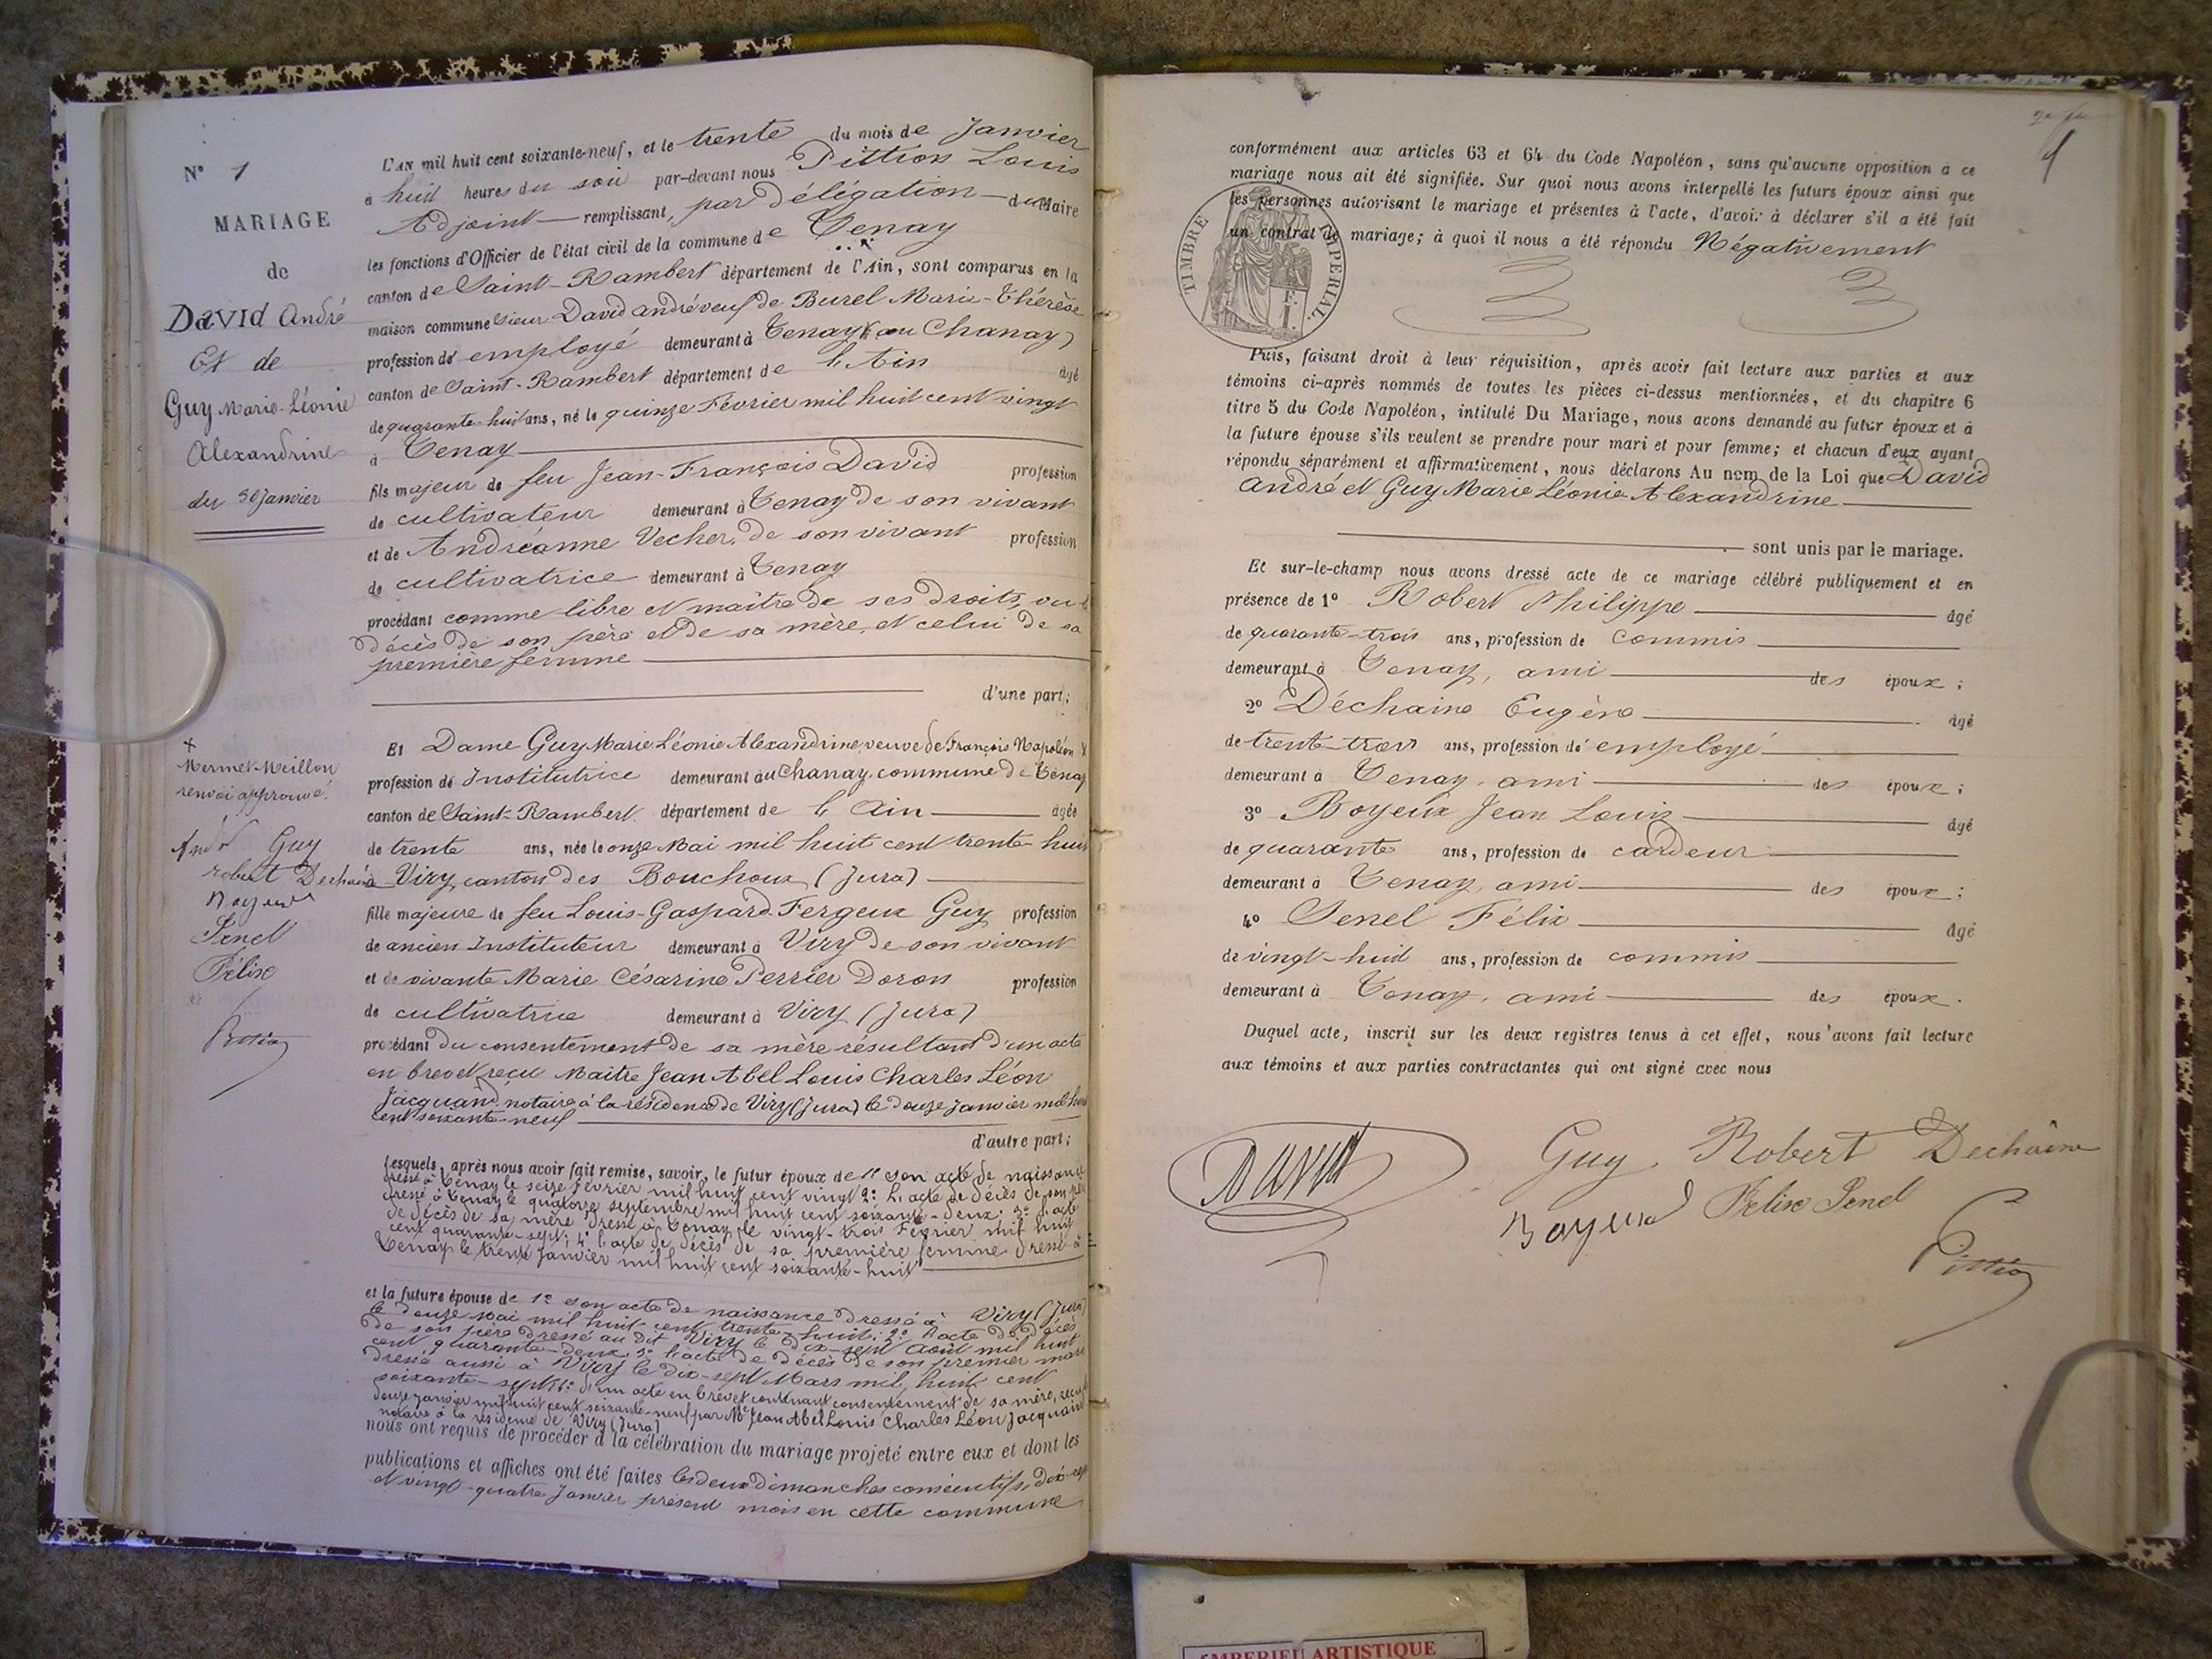 N° 1
MARIAGE
de
David André
Et de
Guy Marie Léonie
Alexandrine
du 30 Janvier
L'AN mil huit cent soixante-neuf, et le trente du mois de Janvier
à huit heures du soir par-devant nous Pittion Louis
Adjoint remplissant, par délégation du Maire
les fonctions d'Officier de l'état civil de la commune de Tenay
canton de Saint-Rambert département de l'Ain, sont comparus en la
maison commune Sieur David andré veuf de Burel Marie-Thérèse
profession de employé demeurant à Tenay (au Chanay)
canton de Saint-Rambert département de l'Ain âgé
de quarante-huit ans, né le quinze Février mil huit cent vingt
à Tenay
fils majeur de feu Jean-François David profession
de cultivateur demeurant à Tenay de son vivant
et de Andréanne Vecher, de son vivant profession
de cultivatrice demeurant à Tenay
procédant comme libre et maître de ses droits, vu le
décès de son père et de sa mère, et celui de sa
première femme
d'une part;
Et Dame Guy Marie Léonie Alexandrine veuve de François Napoléon X
profession de Institutrice demeurant au Chanay, commune de Tenay
canton de Saint-Rambert département de l'Ain âgée
de trente ans, née le onze Mai mil huit cent trente-huit
à Viry, canton des Bouchoux (Jura)
fille majeure de feu Louis-Gaspard Fergeux Guy profession
de ancien Instituteur demeurant à Viry de son vivant
et de vivante Marie Césarine Perrier Doron profession
de cultivatrice demeurant à Viry (Jura)
procédant du consentement de sa mère résultant d'un acte
en brevet reçu Maître Jean Abel Louis Charles Léon
Jacquand, notaire à la résidence de Viry (Jura) le douze Janvier mil huit
cent soixante-neuf
d'autre part;
X
Mermet-Meillon
renvoi approuvé.
Guy
robert Dechaine
Boyeux
Senel
Félix
Pittion
Lesquels, après nous avoir fait remise, savoir, le futur époux de 1° son acte de naissance
dressé à Tenay le seize février mil huit cent vingt 2° l'acte de décès de son père
dressé à Tenay le quatorze septembre mil huit cent soixante-deux; 3° l'acte
de décès de sa mère dressé à Tenay le vingt-trois Février mil huit
cent quarante-sept; 4° l'acte de décès de sa première femme dressé à
Tenay le trente Janvier mil huit cent soixante-huit
et la future épouse de 1° son acte de naissance dressé à Viry (Jura)
le douze Mai mil huit cent trente-huit; 2° l'acte de décès
de son père dressé au dit Viry le dix-sept Août mil huit
cent quarante-deux, 3° l'acte de décès de son premier mari
dressé aussi à Viry le dix-sept Mars mil huit cent
soixante-sept; 4° d'un acte en brevet contenant consentement de sa mère, reçu le
douze janvier mil huit cent soixante-neuf par Me Jean Abel Louis Charles Léon Jacquand
notaire à la résidence de Viry (Jura)
nous ont requis de procéder à la célébration du mariage projeté entre eux et dont les
publications et affiches ont été faites les deux Dimanches consécutifs, dix-sept
et vingt-quatre Janvier présent mois en cette commune
conformément aux articles 63 et 64 du Code Napoléon, sans qu'aucune opposition à ce
mariage nous ait été signifiée. Sur quoi nous avons interpellé les futurs époux ainsi que
les personnes autorisant le mariage et présentes à l'acte, d'avoir à déclarer s'il a été fait
un contrat de mariage; à quoi il nous a été répondu Négativement
TIMBRE IMPERIAL
F. 1.
Puis, faisant droit à leur réquisition, après avoir fait lecture aux parties et aux
témoins ci-après nommés de toutes les pièces ci-dessus mentionnées, et du chapitre 6
titre 5 du Code Napoléon, intitulé Du Mariage, nous avons demandé au futur époux et à
la future épouse s'ils veulent se prendre pour mari et pour femme; et chacun d'eux ayant
répondu séparément et affirmativement, nous déclarons Au nom de la Loi que David
André et Guy Marie Léonie Alexandrine
sont unis par le mariage.
Et sur-le-champ nous avons dressé acte de ce mariage célébré publiquement et en
présence de 1° Robert Philippe âgé
de quarante-trois ans, profession de commis
demeurant à Tenay, ami des époux;
2° Déchaine Eugène âgé
de trente-trois ans, profession de employé
demeurant à Tenay, ami des époux;
3° Boyeux Jean Louis âgé
de quarante ans, profession de cardeur
demeurant à Tenay, ami des époux;
4° Senel Félix âgé
de vingt-huit ans, profession de commis
demeurant à Tenay, ami des époux.
Duquel acte, inscrit sur les deux registres tenus à cet effet, nous avons fait lecture
aux témoins et aux parties contractantes qui ont signé avec nous
David Guy Robert Dechaine
Boyeux Félix Senel
Pittion
AMBERIEU ARTISTIQUE